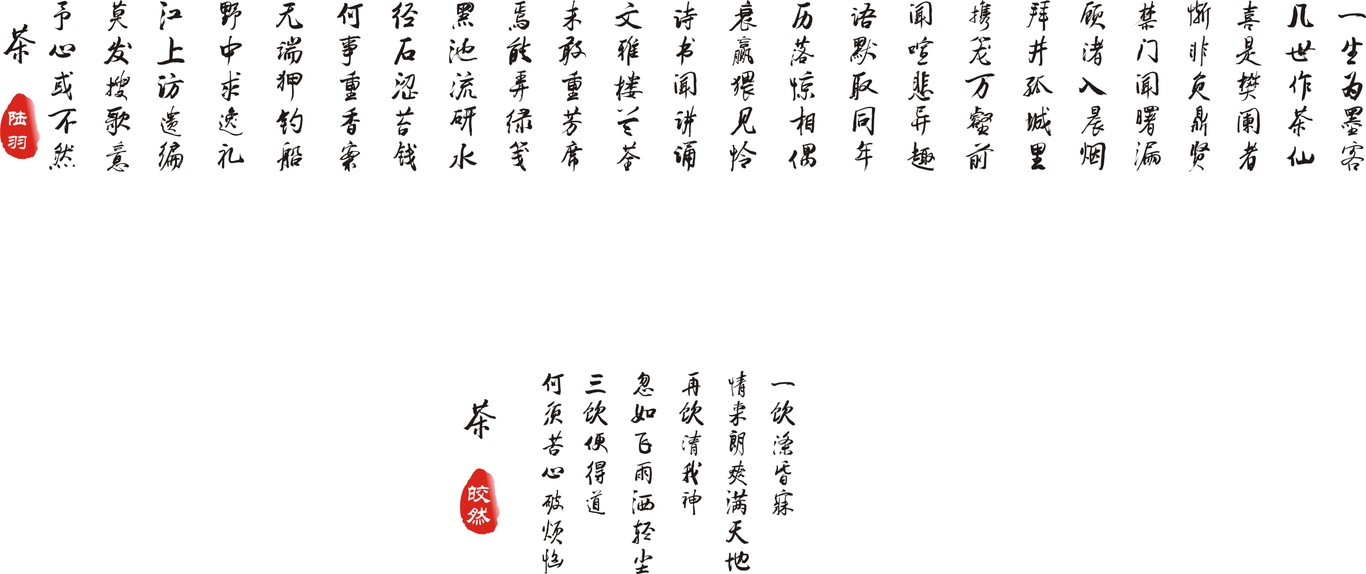 一生为墨客
几世作茶仙
喜是樊阑者
惭非负鼎贤
禁门闻曙漏
顾渚入晨烟
拜井孤城里
携笼万壑前
闻喧悲异趣
语默取同年
历落惊相偶
衰赢猥见怜
诗书闻讲诵
文雅楼兰荃
未敢重芳席
焉能弄绿笺
黑池流研水
径石涩苔钱
何事重香案
无端狎钓船
野中求逸礼
江上访遗编
莫发搜歌意
予心或不然
茶
陆羽
一饮涤昏寐
情来朗爽满天地
再饮清我神
忽如飞雨洒轻尘
三饮便得道
何须苦心破烦恼
茶
皎然